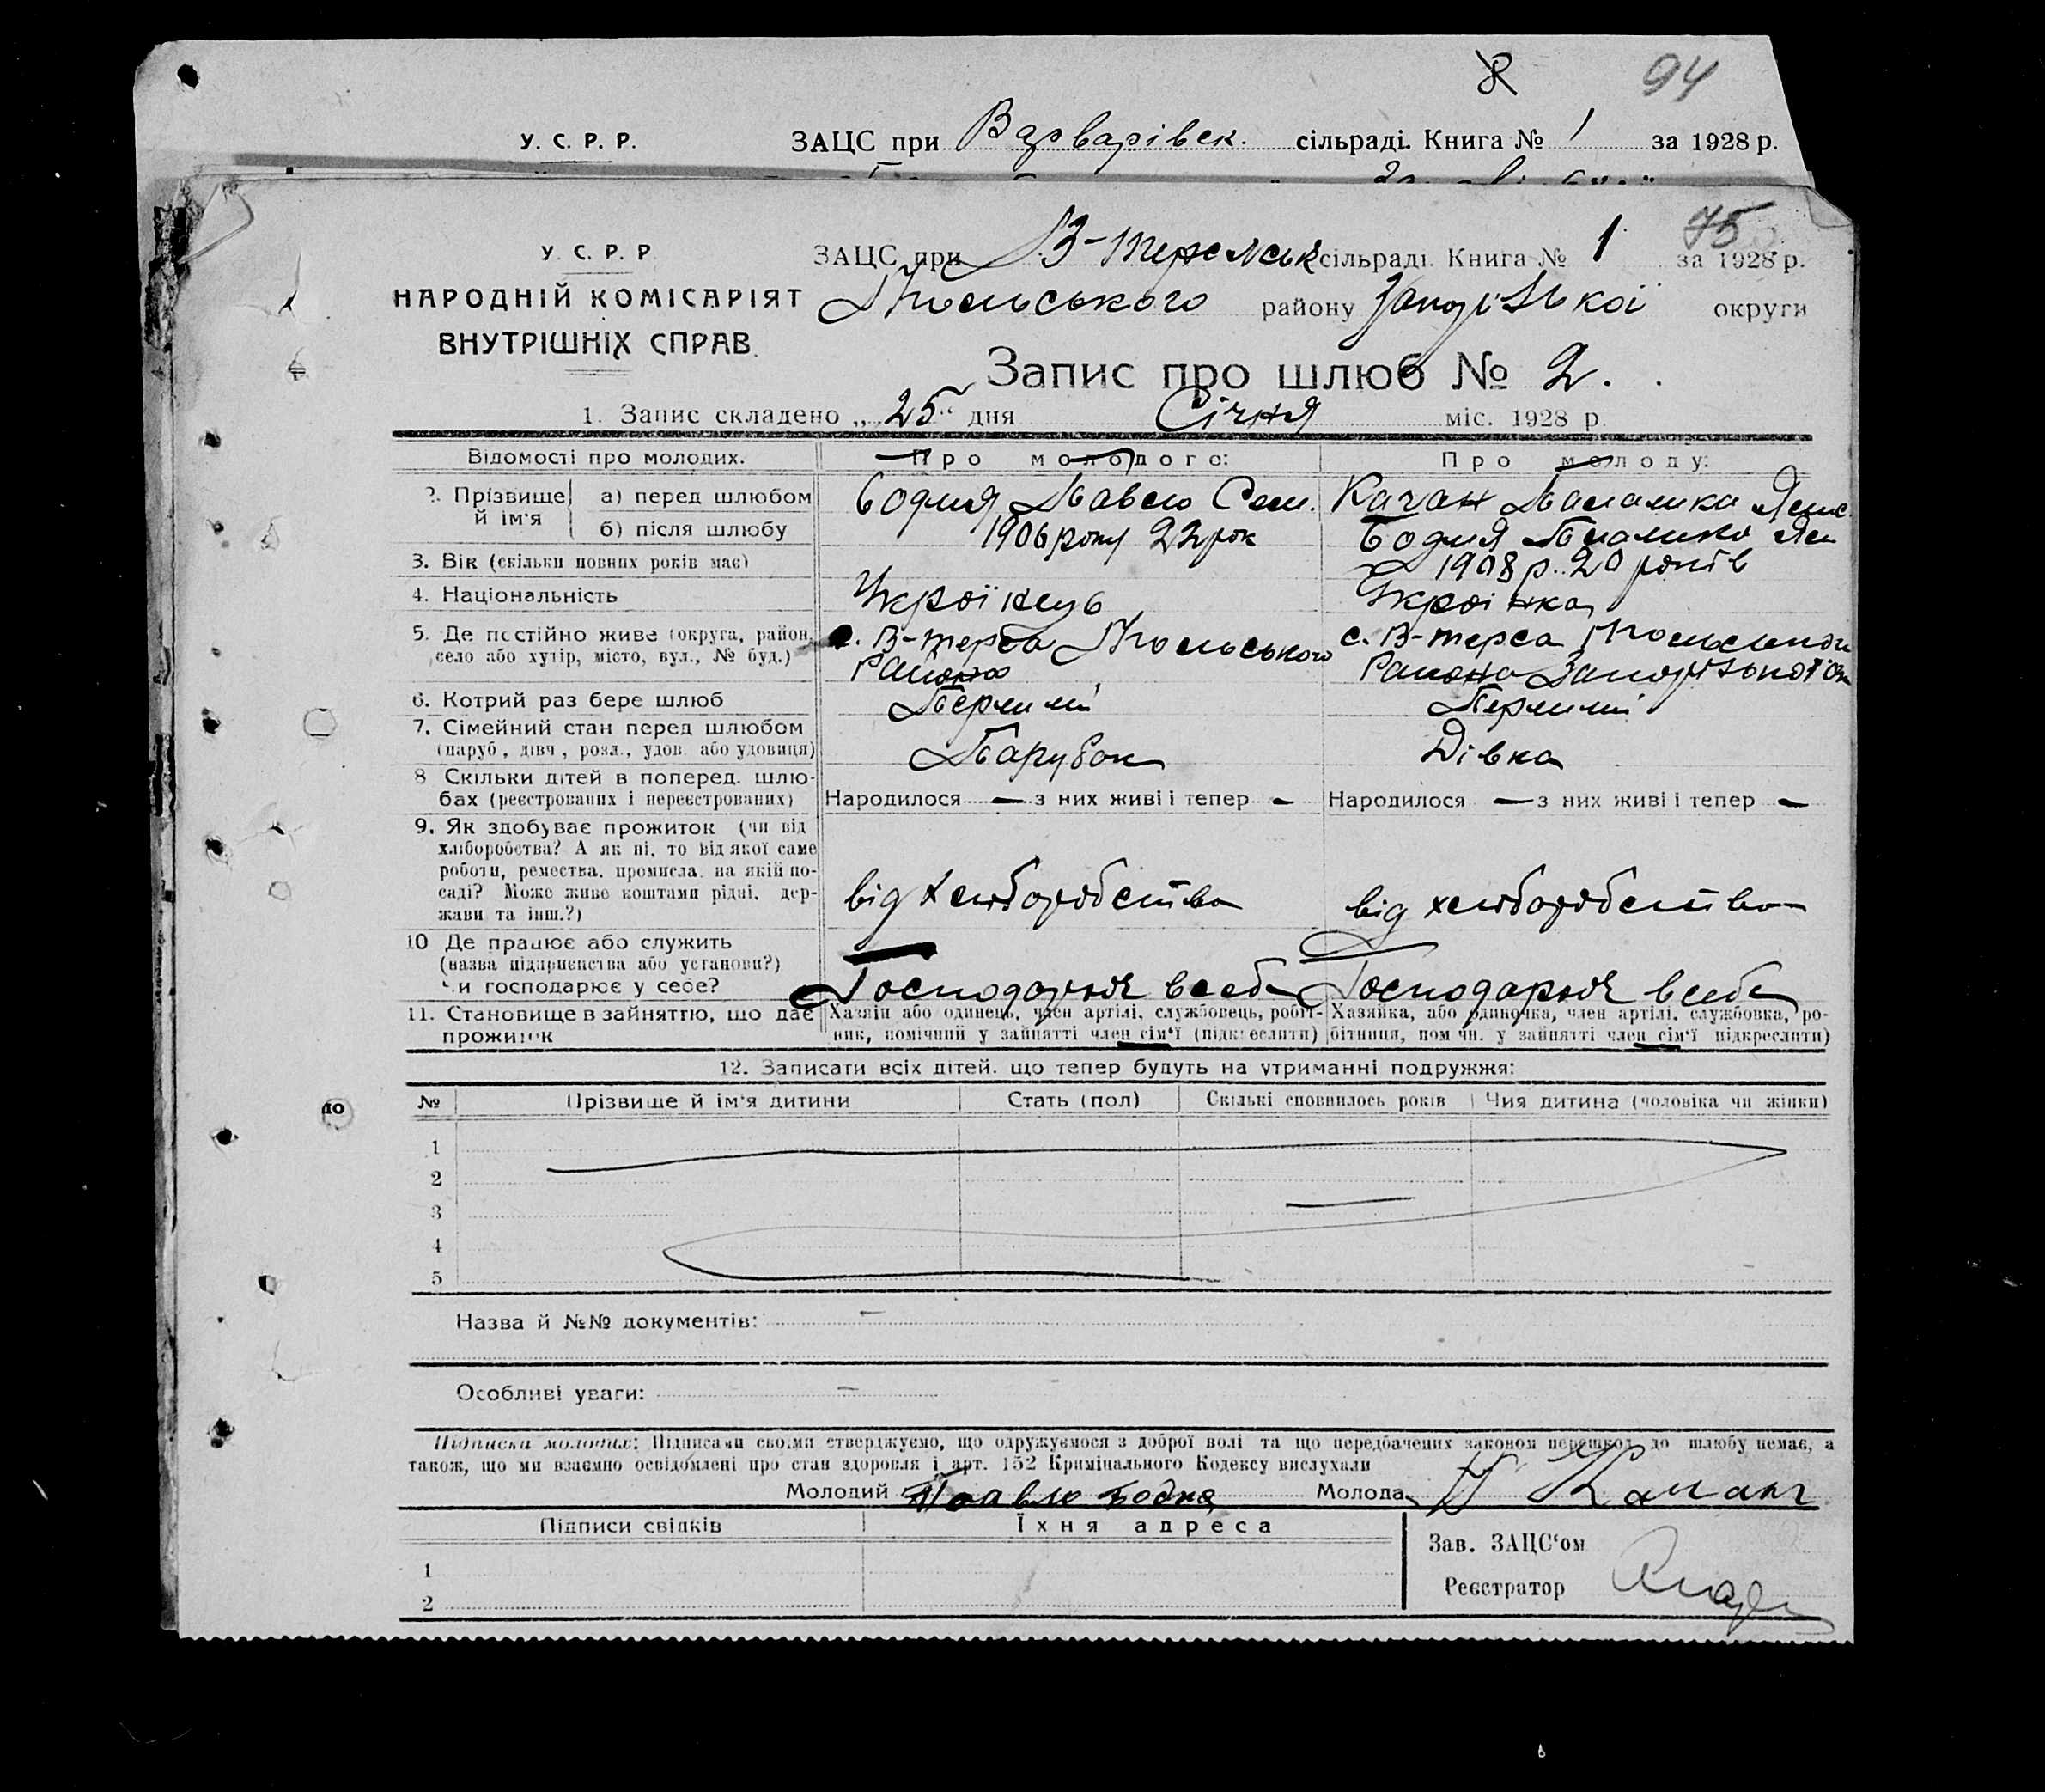 94
У. С. Р. Р. ЗАЦС при Варварівськ. сільраді. Книга № 1 за 1928 р.
75
У. С. Р. Р ЗАЦС при В-Терсянськ сільраді Книга № 1 за 1928 р.
НАРОДНІЙ КОМІСАРІЯТ
ВНУТРІШНІХ СПРАВ.
району Запорізької округи
Запис про шлюб № 2.
1. Запис складено „25“ дня Січня міс. 1928 р.
Відомости про молодих. Про молодого: Про молоду:
2. Прізвище й ім'я
а) перед шлюбом Бодня Павло Сем. Качан
б) після шлюбу Бодня
3. Вік (скільки повних років має) 1906 року 22 рок 1908 р. 20 років
4. Національність Українець Українка
5. Де постійно живе (округа, район, с. В-терса с. В-терса
село або хутір, місто, вул., № буд.) Района Района
6. Котрий раз бере шлюб Перший Перший
7. Сімейний стан перед шлюбом
(паруб., дівч., розл., удов. або удовиця) Парубок Дівка
8 Скільки дітей в поперед. шлю-
бах (реєстрованих і нереєстрованих) Народилося — з них живі і тепер - Народилося — з них живі і тепер -
9. Як здобуває прожиток (чи від
хліборобства? А як ні, то від якої саме
роботи, ремества, промисла, на якій по-
саді? Може живе коштами рідні, дер-
жави та інш.?) від хліборобства від хліборобства
10 Де працює або служить
(назва підприємства або установи?)
Чи господарює у себе? Господарює в себе Господарює в себе
11. Становище в зайняттю, що дає Хазяїн або одинець, член артілі, службовець, робіт- Хазяйка, або одиночка, член артілі, службовка, ро-
прожиток ник, помічний у зайнятті член сім'ї (підкреслити) бітниця, помічн. у зайнятті член сім'ї підкреслити)
12. Записати всіх дітей, що тепер будуть на утриманні подружжя:
№ Прізвище й ім'я дитини Стать (пол) Скількі сповнилось років Чия дитина (чоловіка чи жінки)
1
2
3
4
5
Назва й №№ документів: —
Особливі уваги: —
Підписки молодих: Підписами своїми стверджуємо, що одружуємося з доброї волі та що передбачених законом перешкод до шлюбу немає, а
також, що ми взаємно освідомлені про стан здоровля і арт. 152 Кримінального Кодексу вислухали
Молодий Павло Бодня Молода Качан
Підписи свідків Їхня адреса
Зав. ЗАЦС'ом
1
Реєстратор
2